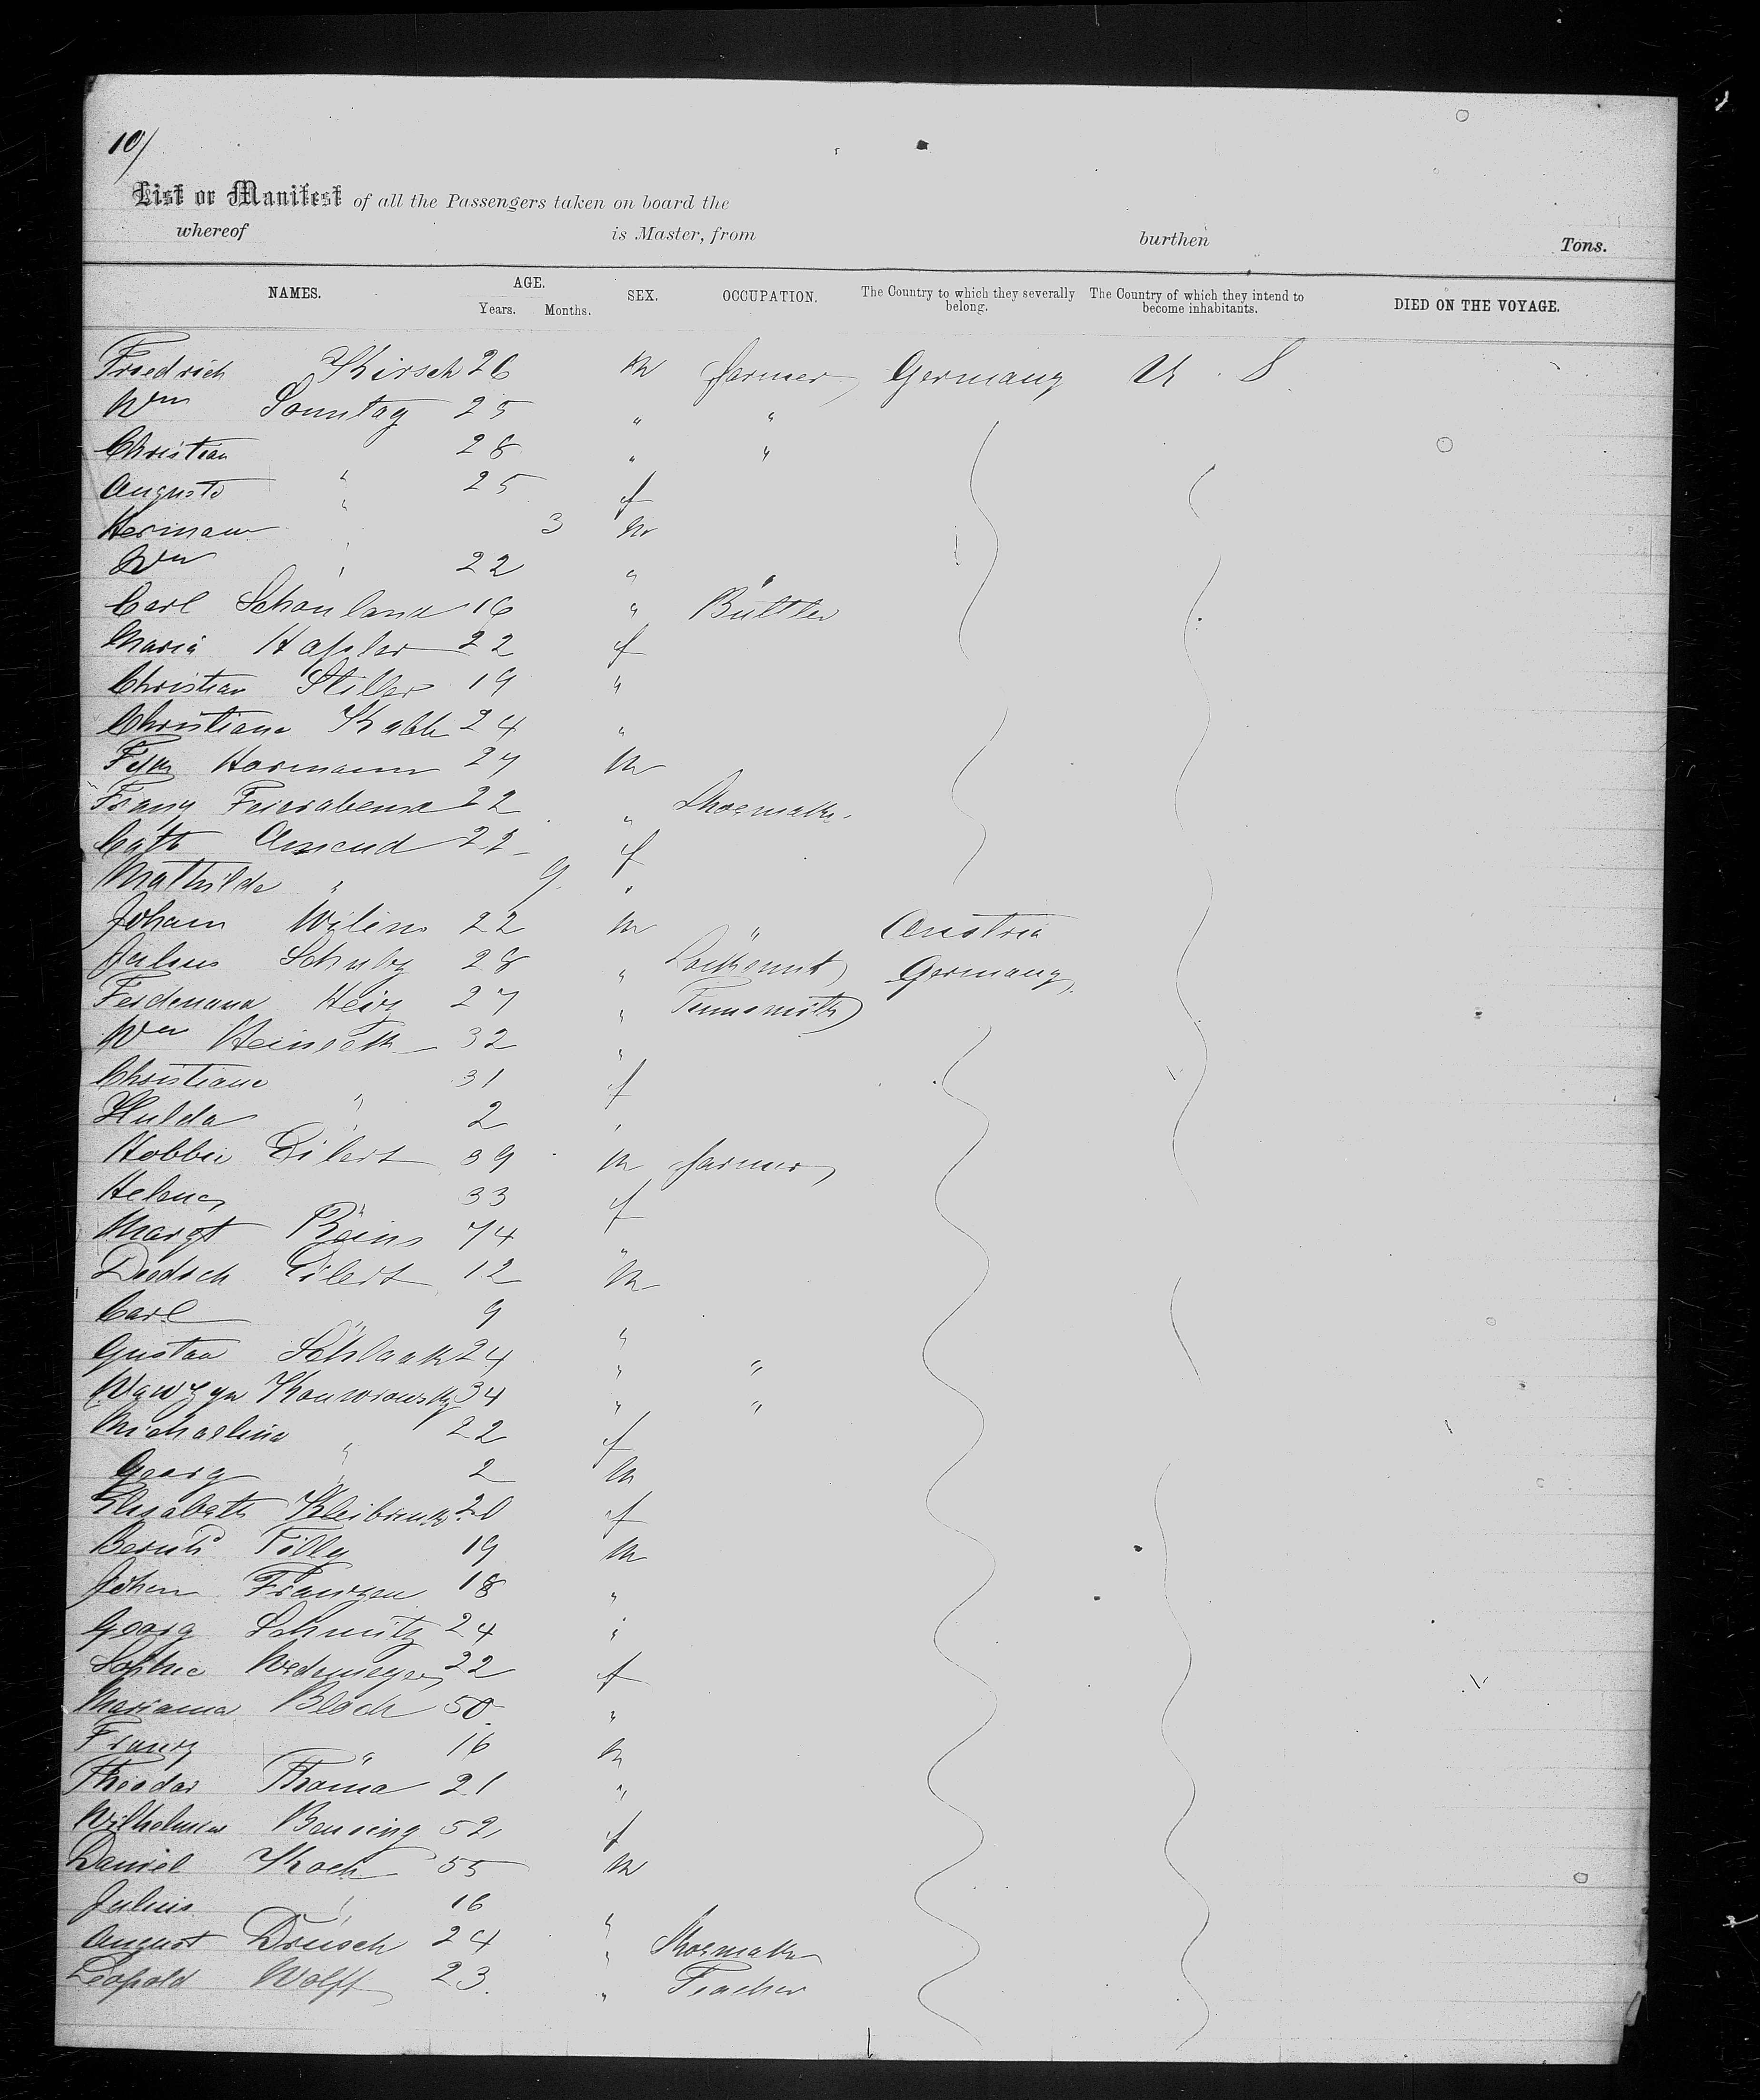 10/
List or Manifest of all the Passengers taken on board the
whereof is Master, from burthen Tons.
NAMES. AGE. Years. Months. SEX. OCCUPATION. The Country to which they severally belong. The Country of which they intend to become inhabitants. DIED ON THE VOYAGE.
Friedrich Kirsch 26 m farmer Germany U. S
Wm Sonntag 25 " "
Christian 28 " "
Auguste " 25 f
Hermann " 3 m
Wm " 22 " "
Carl Schönland 16 " Büttler
Maria Hassler 22 f
Christian Stiller 19 "
Christiane Kabb 24 "
Hermann 27 m
Franz Feierabend 22 " Shoemak.
Cath Amend 22 f
Mathilde " 9 "
Johann 22 m " Austria
Julius Schulz 28 " Germany
Ferdinand Heiz 27 " Tinnsmith
Wm 32 "
Christiane " 31 f
Hulda " 2 "
Hobbie Eilert 39 m farmer
Helene " 33 f
Margt Reins 74 "
Diedrich Eilert 12 m
Carl " 9 "
Gustav Schlaak 24 " "
Wawzyn 34 " "
Michaelina " 22 f
Georg " 2 m
Elisabeth 20 f
Bernhd Tilly 19 m
Johan Franzen 18 "
Georg Schmitz 24 "
Sophie Wedemeyer 22 f
Marianna Bloch 50 "
Franz " 16 m
Theodor Thoma 21 "
Wilhelmine Bensing 52 f
Daniel Koch 55 m
Julius " 16 "
August Drusch 24 " Shoemak
Leopold Wolff 23. " Teacher